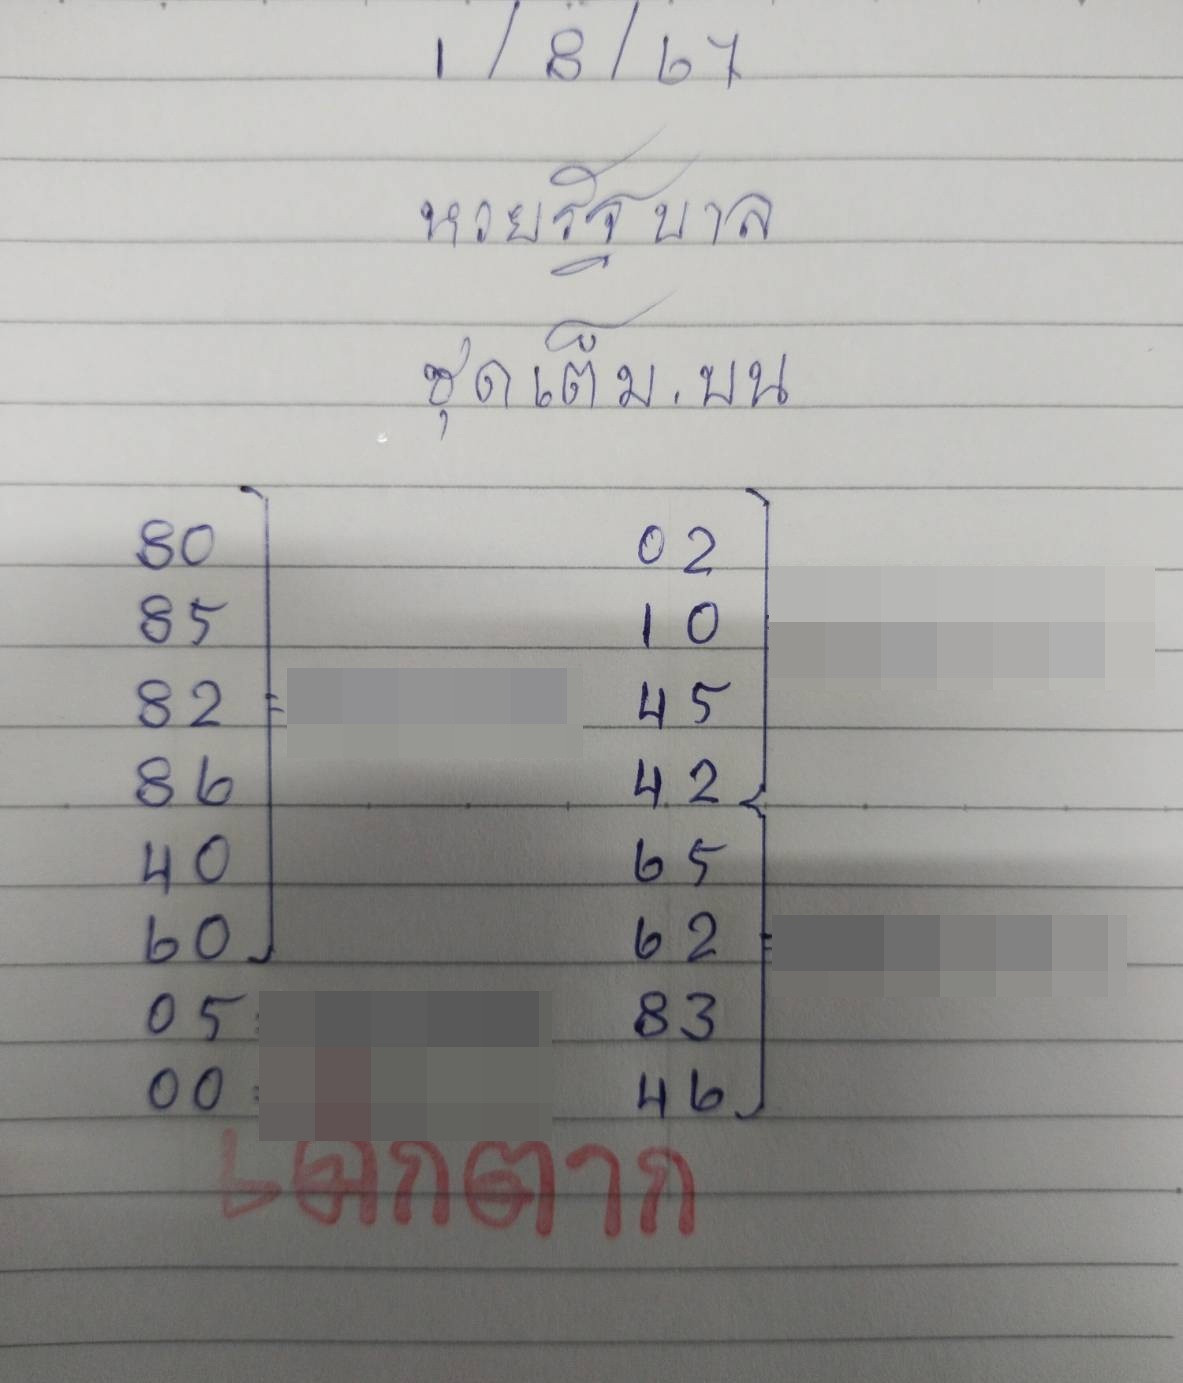 1/8/67
หวยรัฐบาล
ชุดเต็ม.บน
80
85
82
86
40
60
05
00
02
10
45
42
65
62
83
46
เอกตาก